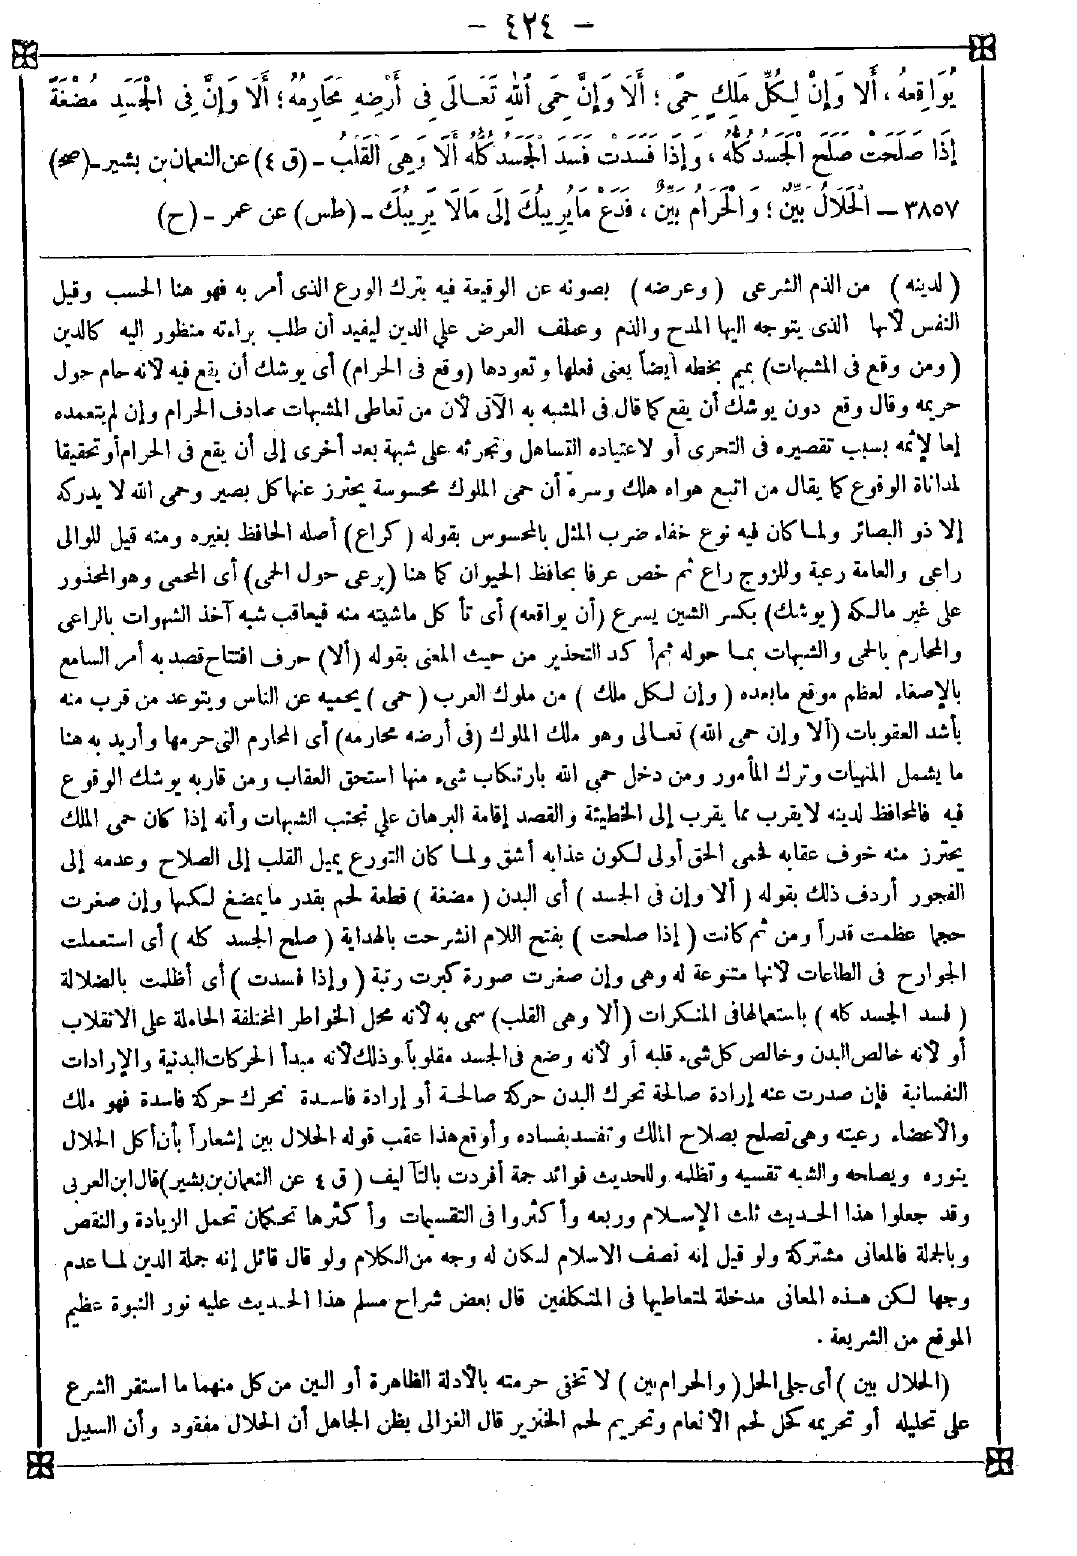 - ٤٢٤ -
يُوَاقِعَهُ، أَلَا وَإِنَّ لِكُلِّ مَلِكٍ حِمًى؛ أَلَا وَإِنَّ حِمَى اللهِ تَعَالَى فِي أَرْضِهِ مَحَارِمُهُ؛ أَلَا وَإِنَّ فِي الْجَسَدِ مُضْغَةً
إِذَا صَلَحَتْ صَلَحَ الْجَسَدُ كُلُّهُ، وَإِذَا فَسَدَتْ فَسَدَ الْجَسَدُ كُلُّهُ أَلَا وَهِيَ الْقَلْبُ - (ق ٤) عن النعمان بن بشير - (صح)
٣٨٥٧ - الْحَلَالُ بَيِّنٌ؛ وَالْحَرَامُ بَيِّنٌ، فَدَعْ مَا يَرِيبُكَ إِلَى مَا لَا يَرِيبُكَ - (طس) عن عمر - (ح)
(لدينه) من الذم الشرعى (وعرضه) بصونه عن الوقيعة فيه بترك الورع الذى أمر به فهو هنا الحسب وقيل
النفس لأنها الذى يتوجه اليها المدح والذم وعطف العرض علي الدين ليفيد أن طلب براءته منظور اليه كالدين
(ومن وقع فى المشبهات) بميم بخطه أيضاً يعنى فعلها وتعودها (وقع فى الحرام) أى يوشك أن يقع فيه لانه حام حول
حريمه وقال وقع دون يوشك أن يقع كما قال فى المشبه به الآتى لأن من تعاطى المشبهات صادف الحرام وإن لم يتعمده
إما لإثمه بسبب تقصيره فى التحرى أو لاعتياده التساهل وتجرئه على شبهة بعد أخرى إلى أن يقع فى الحرام أو تحقيقا
لمداناة الوقوع كما يقال من اتبع هواه هلك وسره أن حمى الملوك محسوسة يحترز عنها كل بصير وحمى الله لا يدركه
إلا ذو البصائر ولما كان فيه نوع خفاء ضرب المثل بالمحسوس بقوله (كراع) أصله الحافظ بغيره ومنه قيل للوالى
راعى والعامة رعية وللزوج راع ثم خص عرفا بحافظ الحيوان كما هنا (يرعى حول الحمى) أى المحمى وهو المحذور
على غير مالكه (يوشك) بكسر الشين يسرع (أن يواقعه) أى تأكل ماشيته منه فيعاقب شبه آخذ الشهوات بالراعى
والمحارم بالحمى والشبهات بما حوله ثم أكد التحذير من حيث المعنى بقوله (ألا) حرف افتتاح قصد به أمر السامع
بالإصغاء لعظم موقع ما بعده (وإن لكل ملك) من ملوك العرب (حمى) يحميه عن الناس ويتوعد من قرب منه
بأشد العقوبات (ألا وإن حمى الله) تعالى وهو ملك الملوك (فى أرضه محارمه) أى المحارم التى حرمها وأريد به هنا
ما يشمل المنهيات وترك المأمور ومن دخل حمى الله بارتكاب شىء منها استحق العقاب ومن قاربه يوشك الوقوع
فيه فالمحافظ لدينه لا يقرب مما يقرب إلى الخطيئة والقصد إقامة البرهان علي تجنب الشبهات وأنه إذا كان حمى الملك
يحترز منه خوف عقابه فحمى الحق أولى لكون عذابه أشق ولما كان التورع يميل القلب إلى الصلاح وعدمه إلى
الفجور أردف ذلك بقوله (ألا وإن فى الجسد) أى البدن (مضغة) قطعة لحم بقدر ما يمضغ لكنها وإن صغرت
حجما عظمت قدراً ومن ثم كانت (إذا صلحت) بفتح اللام انشرحت بالهداية (صلح الجسد كله) أى استعملت
الجوارح فى الطاعات لانها متنوعة له وهى وإن صغرت صورة كبرت رتبة (وإذا فسدت) أى أظلمت بالضلالة
(فسد الجسد كله) باستعمالها فى المنكرات (ألا وهى القلب) سمى به لأنه محل الخواطر المختلفة الحاملة على الانقلاب
أو لانه خالص البدن وخالص كل شىء قلبه أو لأنه وضع فى الجسد مقلوباً وذلك لانه مبدأ الحركات البدنية والإرادات
النفسانية فإن صدرت عنه إرادة صالحة تحرك البدن حركة صالحة أو إرادة فاسدة تحرك حركة فاسدة فهو ملك
والأعضاء رعيته وهى تصلح بصلاح الملك وتفسد بفساده وأوقع هذا عقب قوله الحلال بين إشعاراً بأن أكل الحلال
ينوره ويصلحه والشبه تقسيه وتظلمه وللحديث فوائد جمة أفردت بالتآليف (ق ٤ عن النعمان بن بشير) قال ابن العربى
وقد جعلوا هذا الحديث ثلث الإسلام وربعه وأكثروا فى التقسيمات وأكثرها تحكمات تحمل الزيادة والنقص
وبالجملة فالمعانى مشتركة ولو قيل إنه نصف الاسلام لكان له وجه من الكلام ولو قال قائل إنه جملة الدين لما عدم
وجها لكن هذه المعانى مدخلة لمتعاطيها فى المتكلفين قال بعض شراح مسلم هذا الحديث عليه نور النبوة عظيم
الموقع من الشريعة .
(الحلال بين) أى جلى الحل (والحرام بين) لا تخفى حرمته بالأدلة الظاهرة أو البين من كل منهما ما استقر الشرع
على تحليله أو تحريمه كحل لحم الأنعام وتحريم لحم الخنزير قال الغزالى يظن الجاهل أن الحلال مفقود وأن السبيل